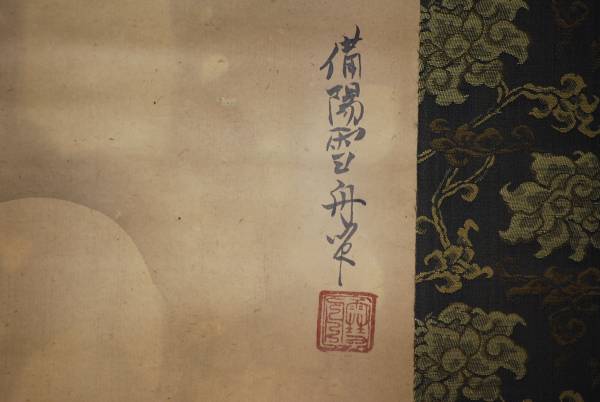 備陽雪舟筆